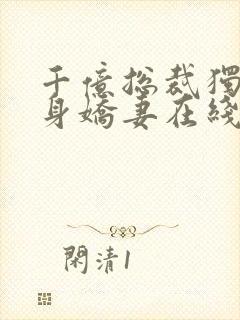 千億总裁獨
身嬌妻在綫
閑清1